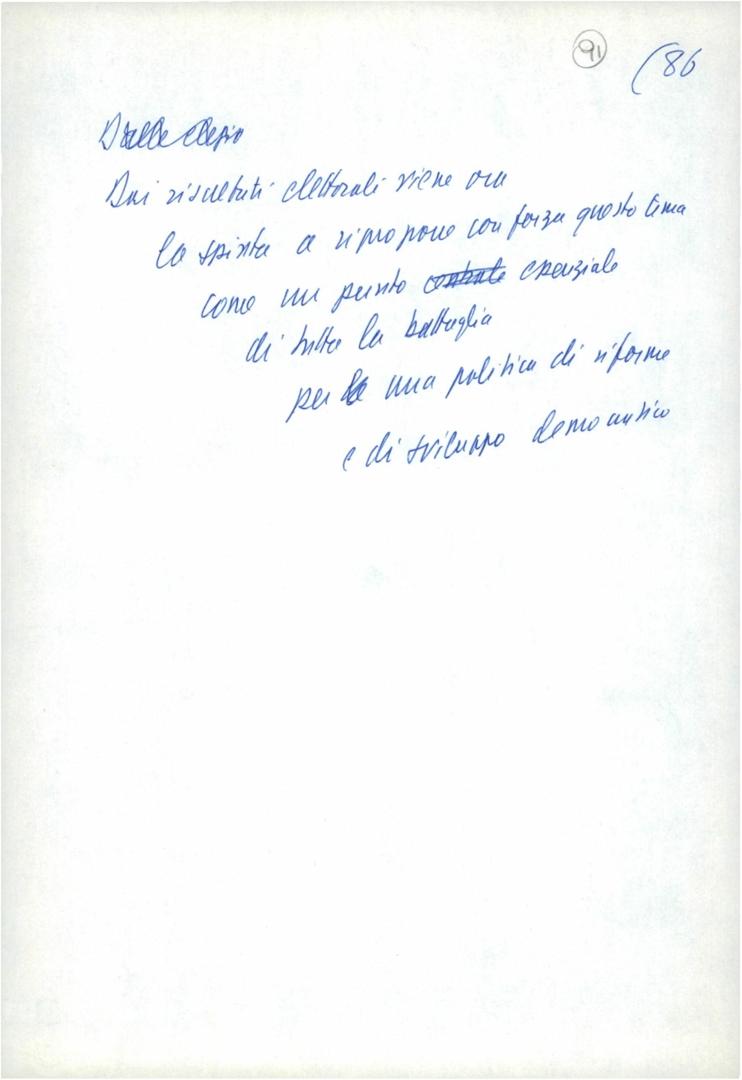 91
(86
Dalle elezio
Dai risultati elettorali viene ora
la spinta a riproporre con forza questo tema
come un punto centrale essenziale
di tutta la battaglia
per la una politica di riforme
e di sviluppo democratico